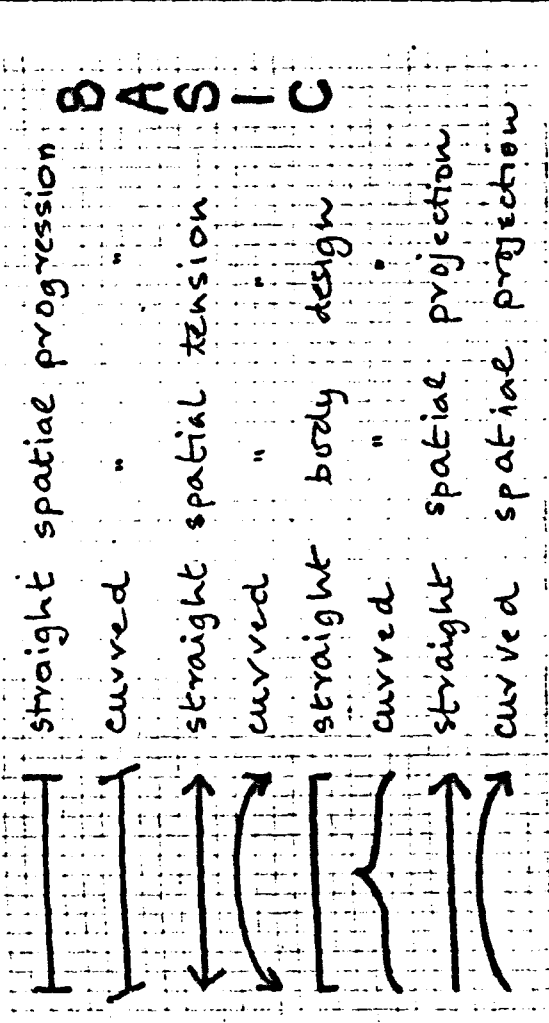 BASIC
straight spatial progression
curved " "
straight spatial tension
curved " "
straight body design
curved " "
straight spatial projection
curved spatial projection